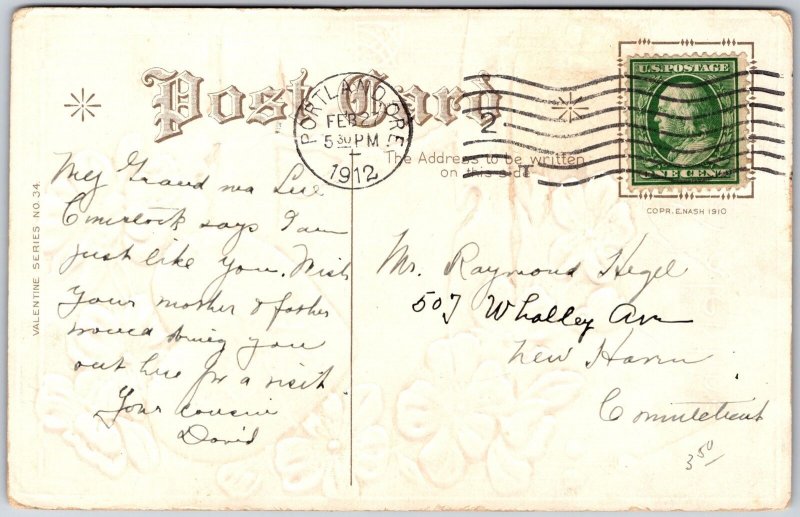 Post Card
U.S. POSTAGE
ONE CENT
PORTLAND, ORE.
FEB 27
5 30 PM
1912
2
The Address to be written
on this side
COPR. E. NASH 1910
VALENTINE SERIES NO. 34.
My Grand ma
says I am
just like you. Wish
your mother & father
would bring you
out here for a visit
Your cousin
David
Mr. Raymond Hegel
507 Whalley Ave
New Haven
Connecticut
3 50